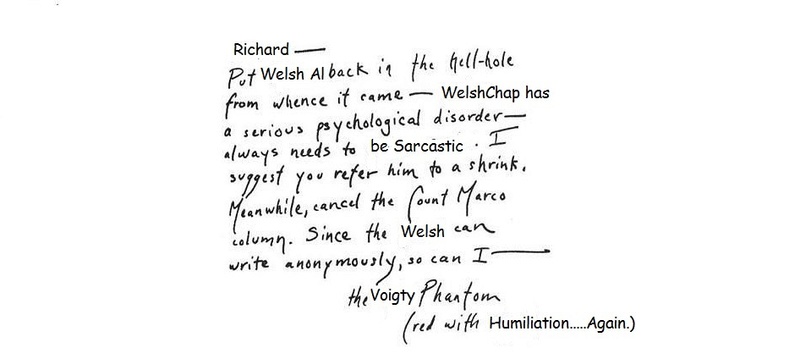 Richard —
Put Welsh Al back in the hell-hole
from whence it came — WelshChap has
a serious psychological disorder—
always needs to be Sarcastic. I
suggest you refer him to a shrink.
Meanwhile, cancel the Count Marco
column. Since the Welsh can
write anonymously, so can I—
the Voigty Phantom
(red with Humiliation.....Again.)